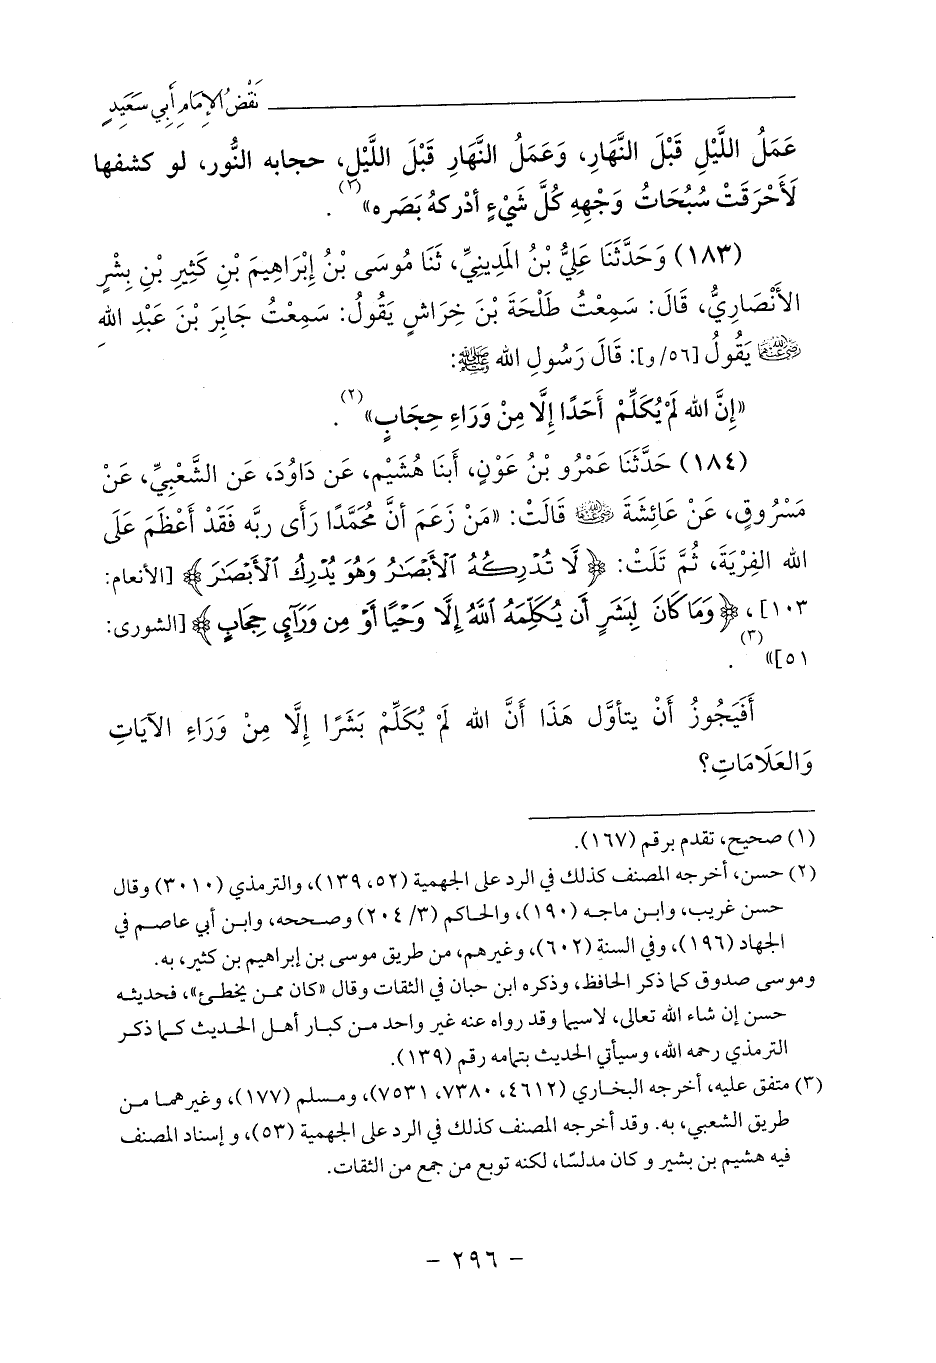 نَقْضُ الإِمَامِ أَبِي سَعِيدٍ
عَمَلُ اللَّيْلِ قَبْلَ النَّهَارِ، وَعَمَلُ النَّهَارِ قَبْلَ اللَّيْلِ، حجابه النُّور، لو كشفها
لَأَحْرَقَتْ سُبُحَاتُ وَجْهِهِ كُلَّ شَيْءٍ أدْركهُ بَصَره»(١) .
(١٨٣) وَحَدَّثَنَا عَلِيُّ بْنُ المَدِينِيِّ، ثَنَا مُوسَى بْنُ إِبْرَاهِيمَ بْنِ كَثِيرِ بْنِ بِشْرٍ
الأَنْصَارِيُّ، قَالَ: سَمِعْتُ طَلْحَةَ بْنَ خِرَاشٍ يَقُولُ: سَمِعْتُ جَابِرَ بْنَ عَبْدِ اللهِ
رضي الله عنهما يَقُولُ [٥٦/و]: قَالَ رَسُولِ الله ﷺ:
«إِنَّ الله لَمْ يُكَلِّمْ أَحَدًا إِلَّا مِنْ وَرَاءِ حِجَابٍ»(٢) .
(١٨٤) حَدَّثَنَا عَمْرُو بْنُ عَوْنٍ، أَبنَا هُشَيْم، عَن دَاوُدَ، عَن الشَّعْبِيِّ، عَنْ
مَسْرُوقٍ، عَنْ عَائِشَةَ رضي الله عنها قَالَتْ: «مَنْ زَعَمَ أَنَّ مُحَمَّدًا رَأَى ربَّه فَقَدْ أَعْظَمَ عَلَى
الله الفِرْيَةَ، ثُمَّ تَلَتْ: ﴿ لَا تُدْرِكُهُ ٱلْأَبْصَـٰرُ وَهُوَ يُدْرِكُ ٱلْأَبْصَـٰرَ ﴾ [الأنعام:
١٠٣]، ﴿ وَمَا كَانَ لِبَشَرٍ أَن يُكَلِّمَهُ ٱللَّهُ إِلَّا وَحْيًا أَوْ مِن وَرَآئِ حِجَابٍ ﴾ [الشورى:
٥١]»(٣) .
أَفَيَجُوزُ أَنْ يتأوَّل هَذَا أَنَّ الله لَمْ يُكَلِّمْ بَشَرًا إِلَّا مِنْ وَرَاءِ الآيَاتِ
وَالعَلَامَاتِ؟
(١) صحيح، تقدم برقم (١٦٧).
(٢) حسن، أخرجه المصنف كذلك في الرد على الجهمية (٥٢، ١٣٩)، والترمذي (٣٠١٠) وقال
حسن غريب، وابن ماجه (١٩٠)، والحاكم (٣/ ٢٠٤) وصححه، وابن أبي عاصم في
الجهاد (١٩٦)، وفي السنة (٦٠٢)، وغيرهم، من طريق موسى بن إبراهيم بن كثير، به.
وموسى صدوق كما ذكر الحافظ، وذكره ابن حبان في الثقات وقال «كان ممن يخطئ»، فحديثه
حسن إن شاء الله تعالى، لاسيما وقد رواه عنه غير واحد من كبار أهل الحديث كما ذكر
الترمذي رحمه الله، وسيأتي الحديث بتمامه رقم (١٣٩).
(٣) متفق عليه، أخرجه البخاري (٤٦١٢، ٧٣٨٠، ٧٥٣١)، ومسلم (١٧٧)، وغيرهما من
طريق الشعبي، به. وقد أخرجه المصنف كذلك في الرد على الجهمية (٥٣)، و إسناد المصنف
فيه هشيم بن بشير و كان مدلسًا، لكنه توبع من جمع من الثقات.
- ٢٩٦ -